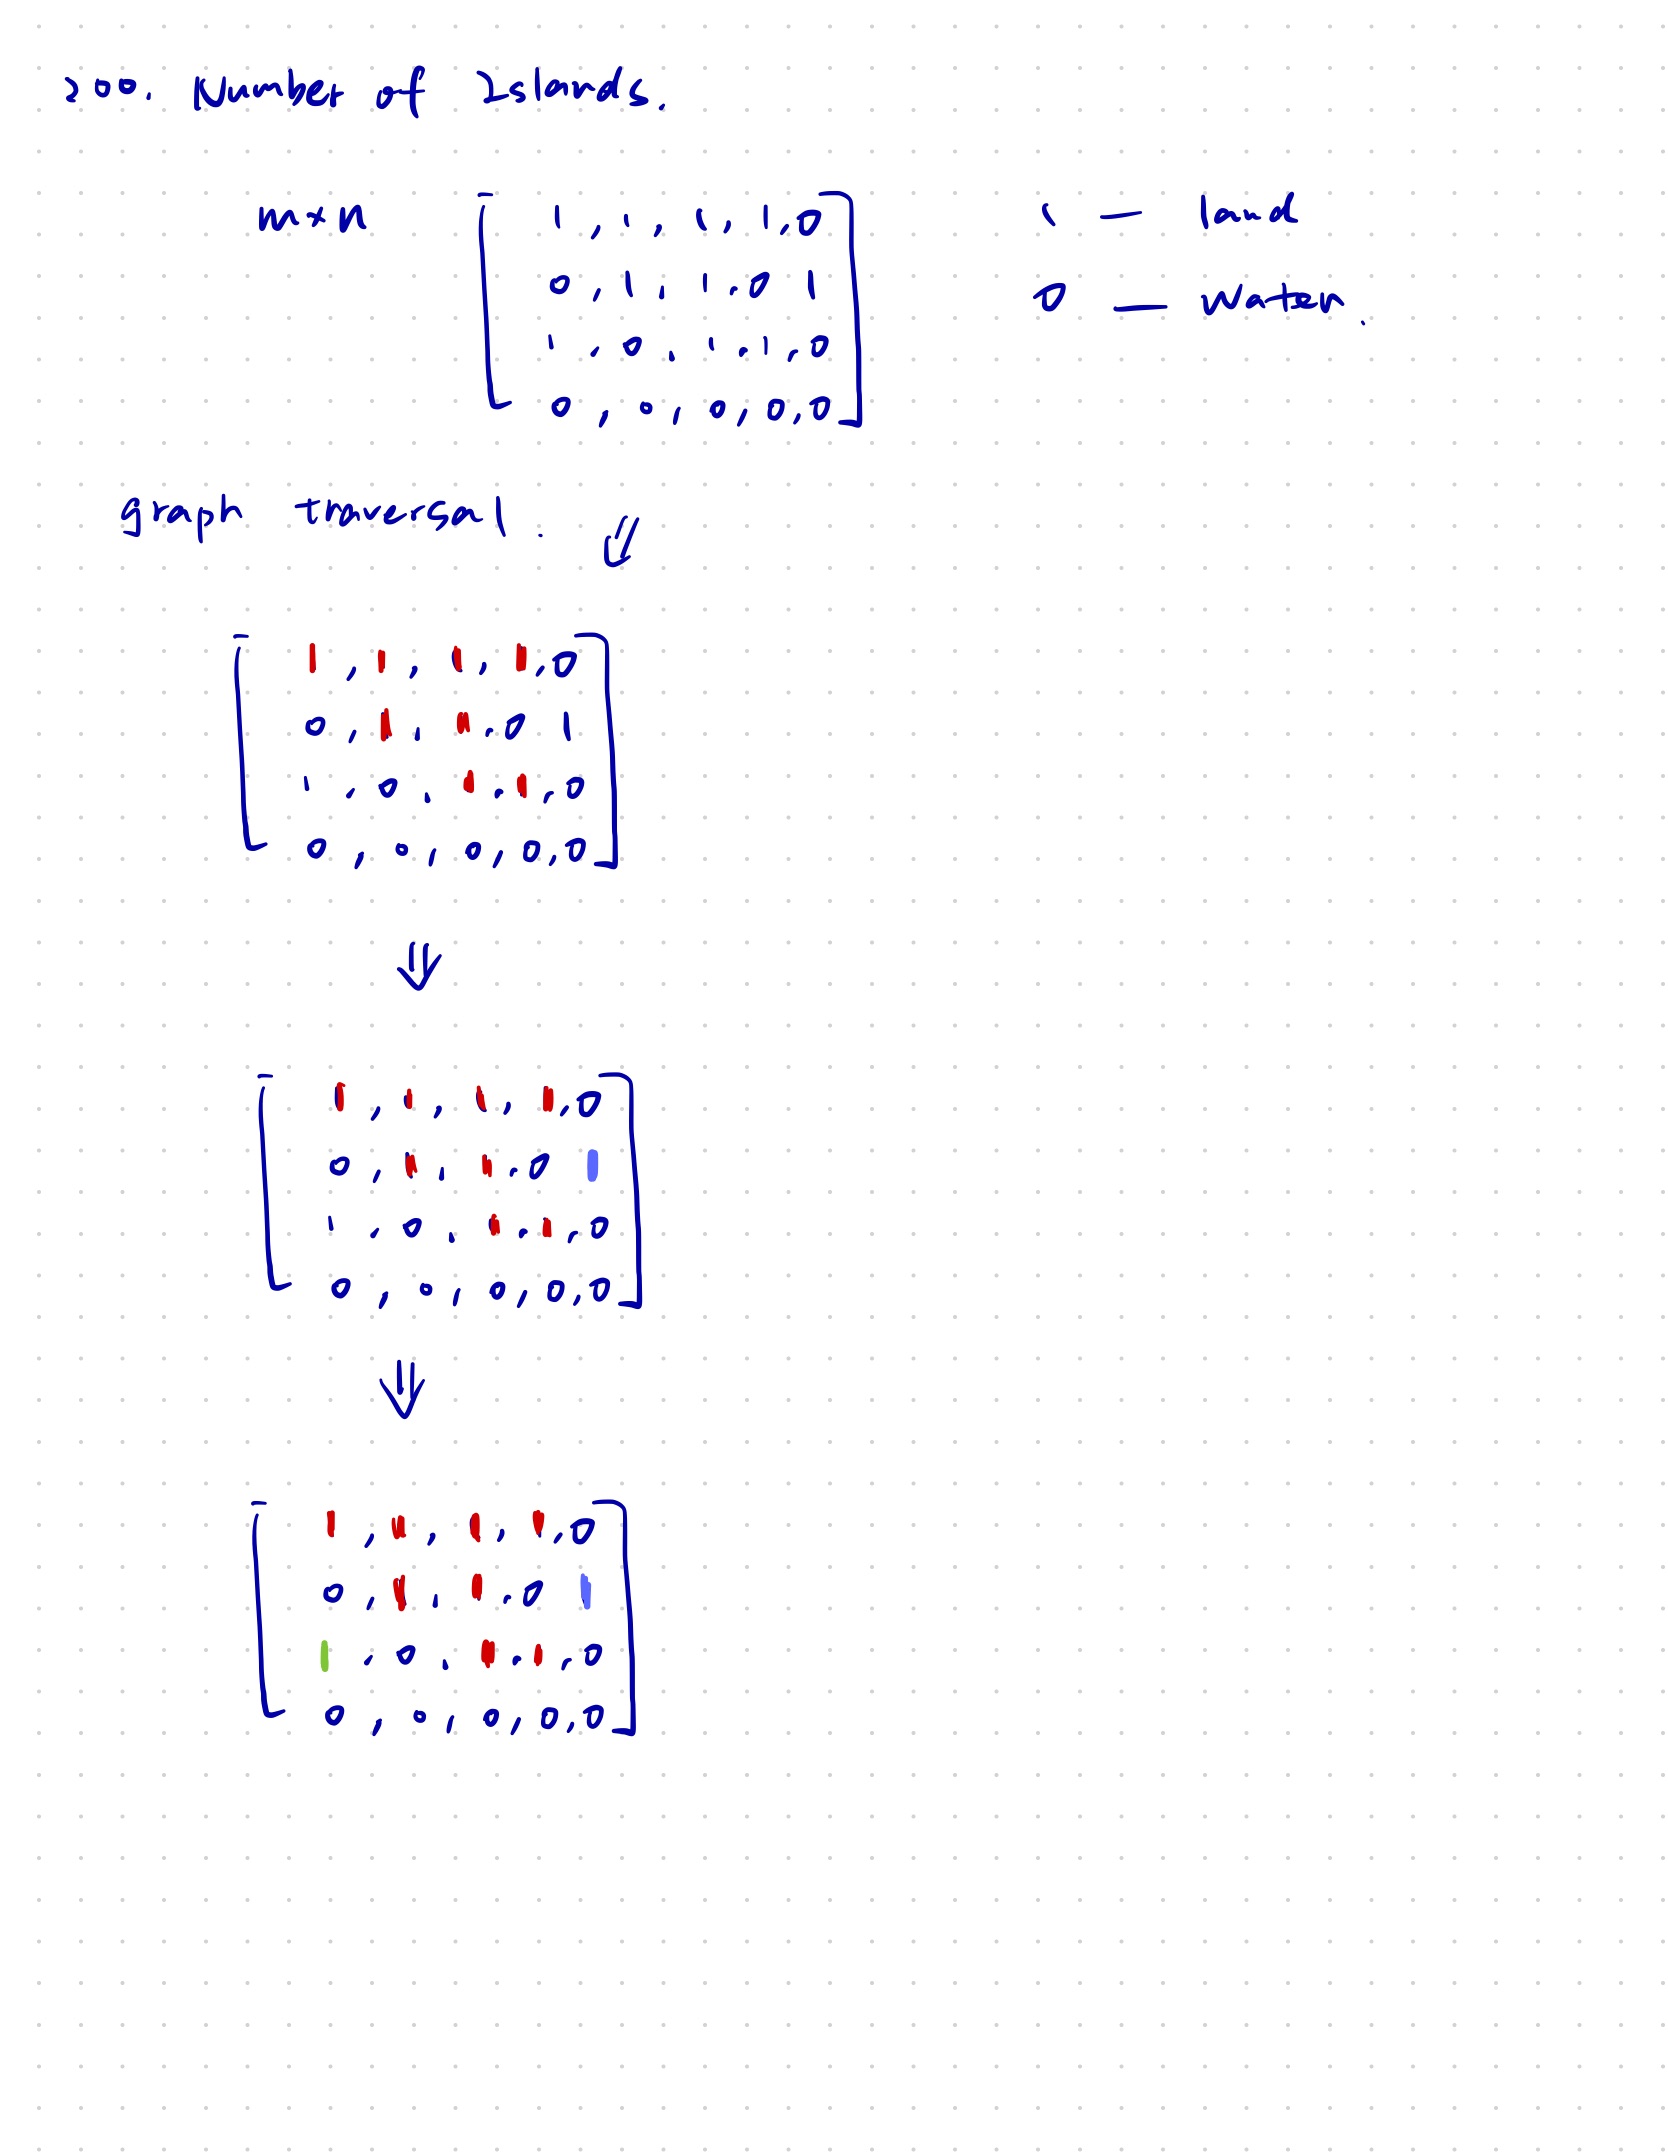 200. Number of Islands.
m×n [ 1, 1, 1, 1, 0 1 — land
0, 1, 1, 0 1 0 — water.
1, 0, 1, 1, 0
0, 0, 0, 0, 0 ]
graph traversal. ⇓
[ 1, 1, 1, 1, 0
0, 1, 1, 0 1
1, 0, 1, 1, 0
0, 0, 0, 0, 0 ]
⇓
[ 1, 1, 1, 1, 0
0, 1, 1, 0 1
1, 0, 1, 1, 0
0, 0, 0, 0, 0 ]
⇓
[ 1, 1, 1, 1, 0
0, 1, 1, 0 1
1, 0, 1, 1, 0
0, 0, 0, 0, 0 ]